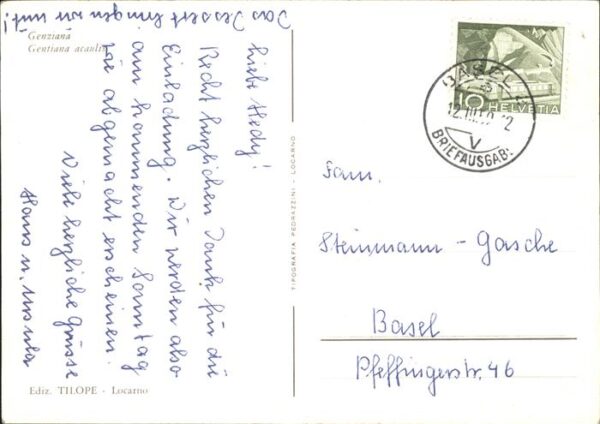 Genziana
Gentiana acaulis
Liebe Hedy!
Recht herzlichen Dank für die
Einladung. Wir werden also
am kommenden Sonntag
wie abgemacht erscheinen.
Viele herzliche Grüsse
Hans u.
Das Dessert bringen wir mit!
Ediz. TILOPE - Locarno
TIPOGRAFIA PEDRAZZINI - LOCARNO
10 HELVETIA
BASEL 2
12.III.
V
BRIEFAUSGABE
Fam.
Steinmann - Gasche
Basel
Pfeffingerstr. 46